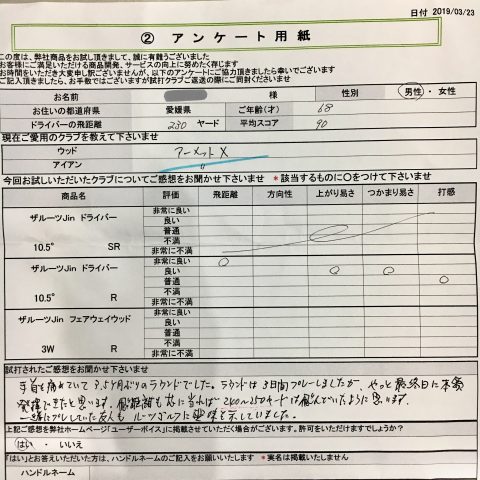 日付 2019/03/23
② アンケート用紙
この度は、弊社商品をお試し頂きまして、誠に有難うございました
お客様にご満足いただける商品開発、サービスの向上に努めたく存じます
お時間をいただき大変申し訳ございませんが、以下のアンケートにご協力頂きましたら幸いでございます
ご記入頂きましたら、お手数ではございますが試打クラブご返送の際にご同封くださいませ
お名前 様 性別 男性・女性
お住いの都道府県 愛媛県 ご年齢(才) 68
ドライバーの飛距離 230 ヤード 平均スコア 90
現在ご愛用のクラブを教えて下さいませ
ウッド アーメットX
アイアン 〃
今回お試しいただいたクラブについてご感想をお聞かせ下さいませ *該当するものに〇をつけて下さいませ
商品名 評価 飛距離 方向性 上がり易さ つかまり易さ 打感
ザルーツJin ドライバー
10.5° SR
非常に良い
良い
普通
不満
非常に不満
ザルーツJin ドライバー
10.5° R
非常に良い
良い
普通
不満
非常に不満
ザルーツJin フェアウェイウッド
3W R
非常に良い
良い
普通
不満
非常に不満
試打されたご感想をお聞かせ下さいませ
手首を痛めていて3.5ヶ月ぶりのラウンドでした。ラウンドは3日間プレーしましたが、やっと最終日に本領
発揮できたと思います。飛距離も芯に当れば240〜250ヤードは飛んでいたように思います。
一緒にプレーしていた友人も ルーツゴルフに興味を示していました。
上記ご感想を弊社ホームページ「ユーザーボイス」に掲載させていただく場合がございます。許可をいただけますでしょうか?
はい ・ いいえ
「はい」とお答えいただいた方は、ハンドルネームのご記入をお願いいたします *実名は掲載いたしません
ハンドルネーム